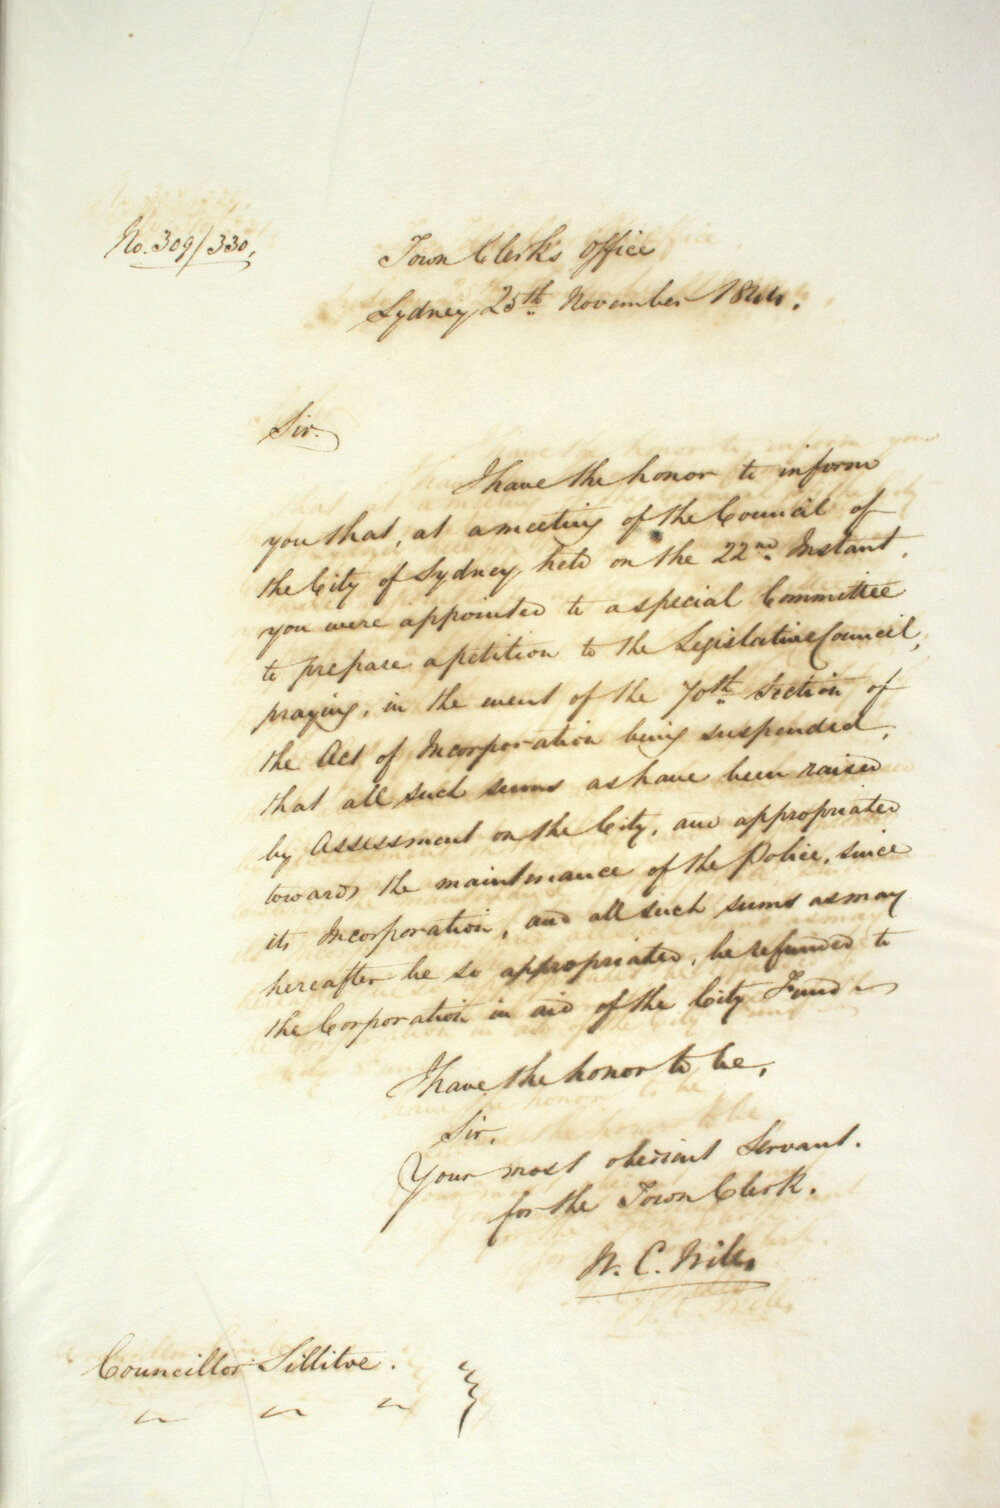 No. 309/330.
Town Clerk's Office
Sydney 25th November 1844.
Sir.
I have the honor to inform
you that, at a meeting of the Council of
the City of Sydney, held on the 22nd Instant,
you were appointed to a special Committee
to prepare a petition to the Legislative Council,
praying, in the event of the 70th Section of
the Act of Incorporation being suspended,
that all such sums as have been raised
by Assessment on the City, and appropriated
towards the maintenance of the Police, since
its Incorporation, and all such sums as may
hereafter be so appropriated, be refunded to
the Corporation in aid of the City Fund
I have the honor to be,
Sir,
Your most obedient Servant.
for the Town Clerk.
W. C. Wills
Councillor Sillitoe.